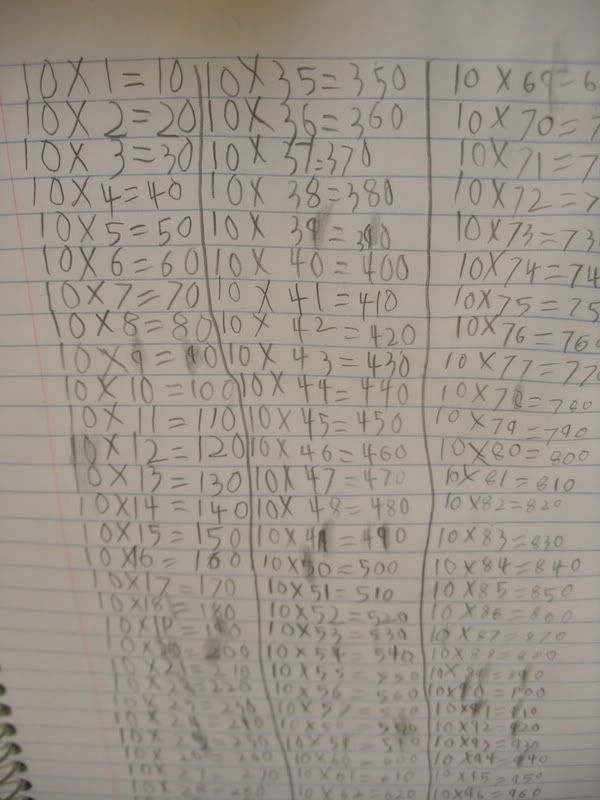 10 X 1 = 10
10 X 2 = 20
10 X 3 = 30
10 X 4 = 40
10 X 5 = 50
10 X 6 = 60
10 X 7 = 70
10 X 8 = 80
10 X 9 = 90
10 X 10 = 100
10 X 11 = 110
10 X 12 = 120
10 X 13 = 130
10 X 14 = 140
10 X 15 = 150
10 X 16 = 160
10 X 17 = 170
10 X 18 = 180
10 X
10 X = 200
10 X 21 = 210
10 X = 220
10 X
10 X
10 X = 250
10 X = 260
10 X 27 = 270
10 X 28 = 280
10 X 35 = 350
10 X 36 = 360
10 X 37 = 370
10 X 38 = 380
10 X 39 = 390
10 X 40 = 400
10 X 41 = 410
10 X 42 = 420
10 X 43 = 430
10 X 44 = 440
10 X 45 = 450
10 X 46 = 460
10 X 47 = 470
10 X 48 = 480
10 X 49 = 490
10 X 50 = 500
10 X 51 = 510
10 X 52 = 520
10 X 53 = 530
10 X 54 = 540
10 X 55 = 550
10 X 56 = 560
10 X 57 = 570
10 X
10 X 59 = 590
10 X 60 = 600
10 X 61 = 610
10 X 62 = 620
10 X 69 = 6
10 X 70 = 7
10 X 71 = 7
10 X 72 = 7
10 X 73 = 73
10 X 74 = 74
10 X 75 = 75
10 X 76 = 760
10 X 77 = 770
10 X 78 = 780
10 X 79 = 790
10 X 80 = 800
10 X 81 = 810
10 X 82 = 820
10 X 83 = 830
10 X 84 = 840
10 X 85 = 850
10 X 86 = 860
10 X 87 = 870
10 X 88 = 880
10 X 89 = 890
10 X 90 = 900
10 X 91 = 910
10 X 92 = 920
10 X 93 = 930
10 X 94 = 940
10 X 95 = 950
10 X 96 = 960